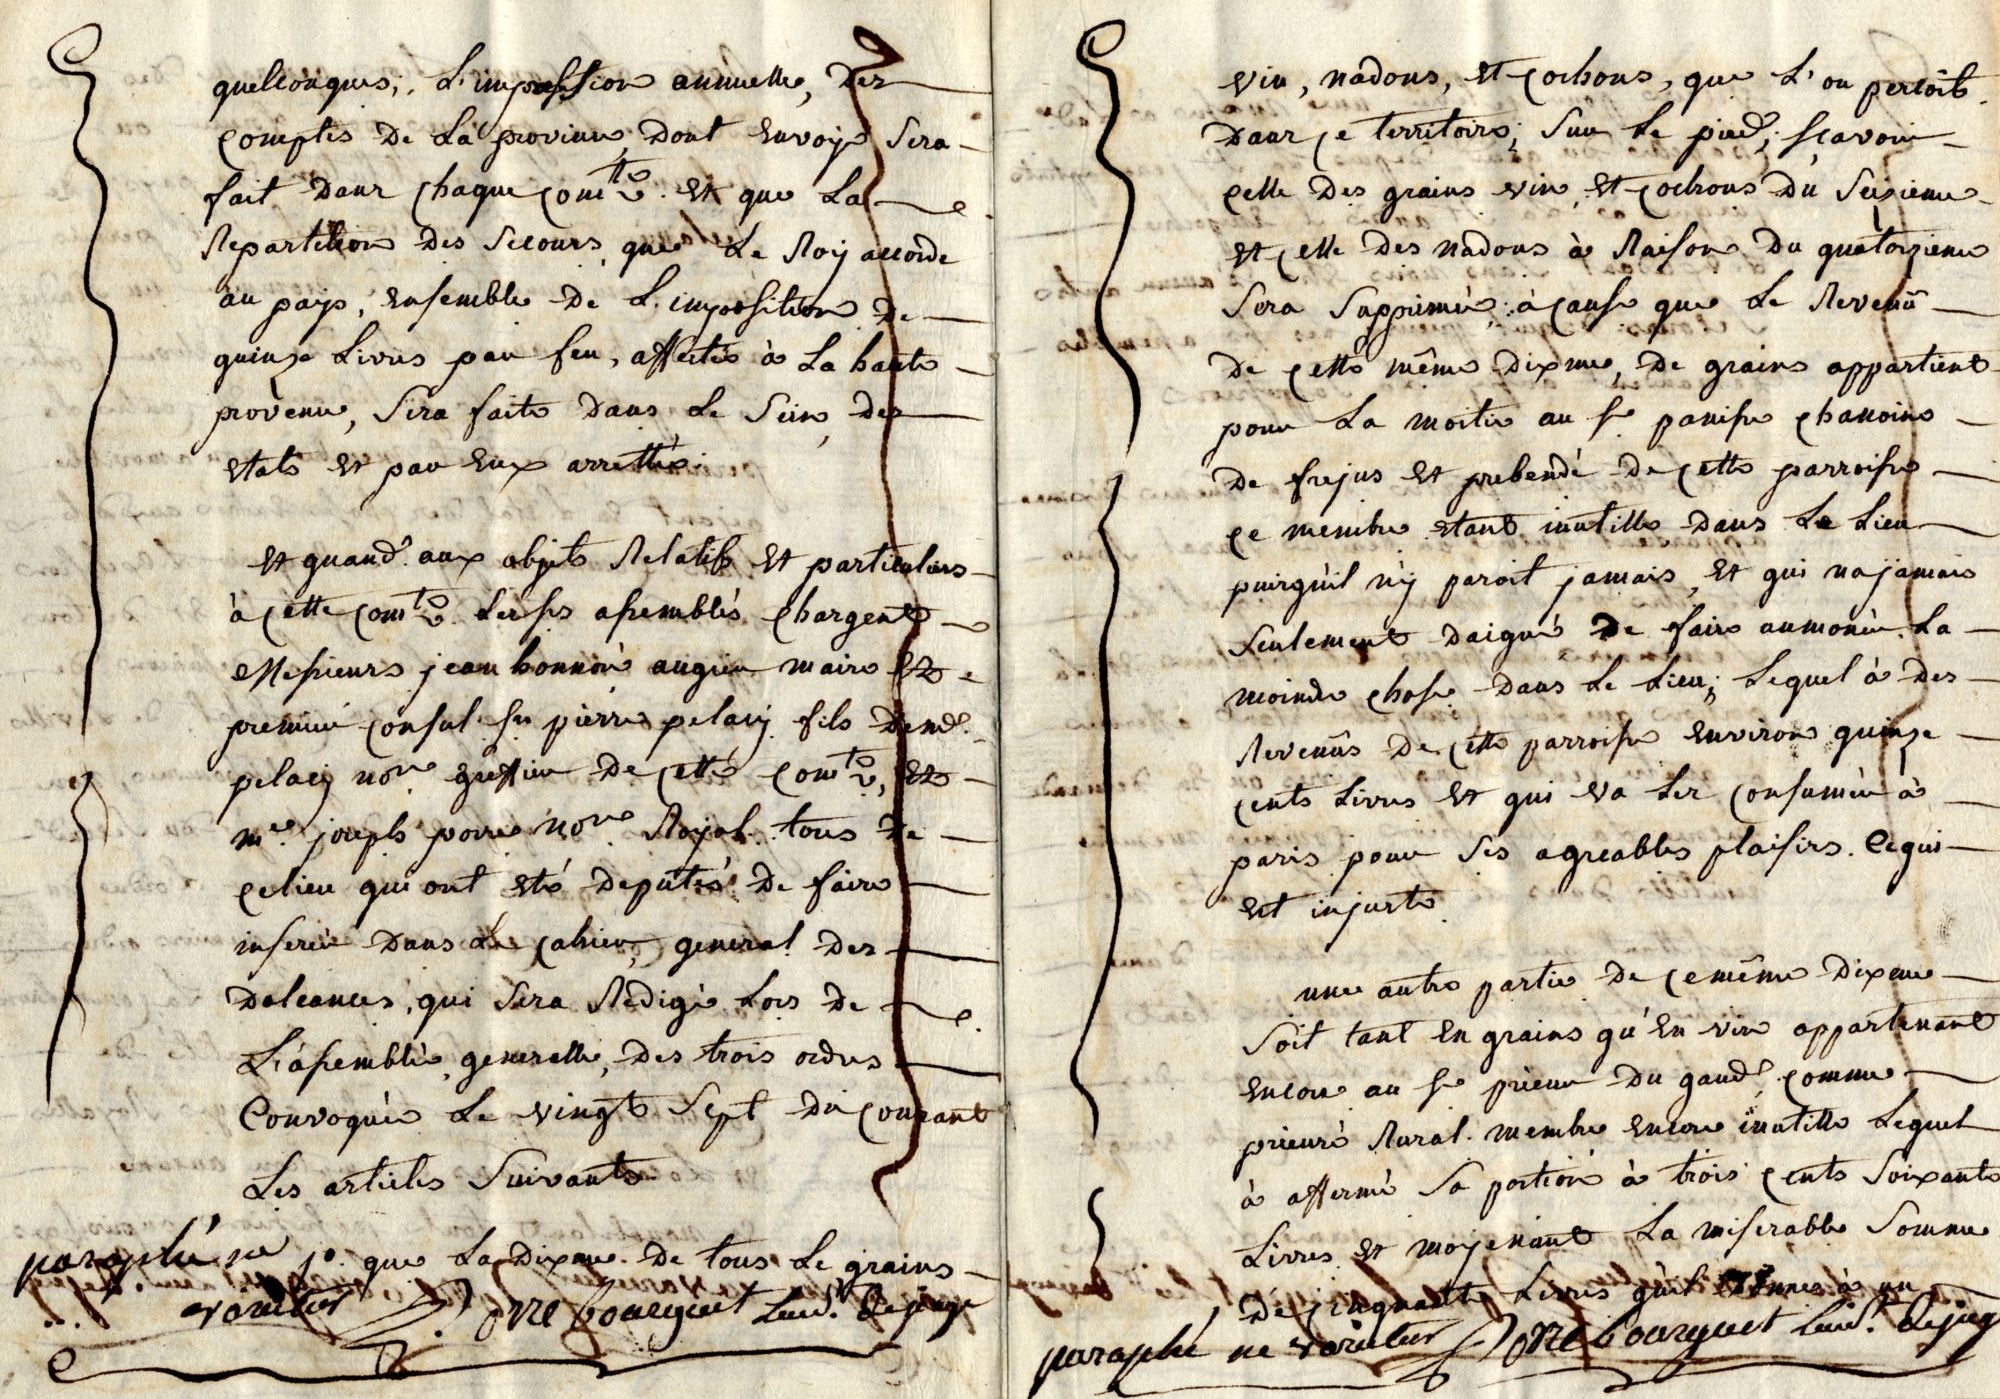 quelconques; L'imposition annuelle, des
comptes de La province, dont envoye sera
fait dans chaque com.té et que La
Repartition des secours, que Le Roy accorde
au pays, ensemble de L'imposition de
quinze Livres par feu, affectée à La haute
provence, sera faite dans Le sein des
etats et par eux arrettée.
et quand aux objets Relatifs et particuliers
à cette com.té Lesd.s assemblés chargent
Messieurs jean honnoré augier maire et
premier consul s.r pierre pelacy fils d'emd.
pelacy no.re greffier de cette com.té, et
m.re joseph porre no.re Royal tous de
ce lieu qui ont eté deputés de faire
inserer dans Le cahier general des
doleances, qui sera Redigé Lors de
L'assemblée generalle, des trois ordres
Convoquée Le vingt sept du courant
Les articles suivants
1.o que La dixme de tous Le grains
paraphé ne
varietur bourguet Lieut. de juge
vin, nadons, et cochons, que L'on percoit
dans ce territoire; sur Le pied, sçavoir
celle des grains vin, et cochons du seizieme
et celle des nadons à Raison du quatorzieme
sera supprimée, à cause que Le Revenû
de cette même dixme, de grains appartient
pour La moitié au s.r panisse chanoine
de frejus et prebendé de cette parroisse
ce membre etant inutille dans Le Lieu
puisqu'il n'y paroit jamais, et qui na jamais
seulement daigné de faire aumonée La
moindre chose dans Le Lieu; Lequel à des
Revenûs de cette parroisse environ quinze
cents Livres et qui va Les consumér à
paris pour ses agreables plaisirs. Ce qui
est injuste
une autre partie de ce même dixme
soit tant en grains qu'en vin appartenant
encore au s.r prieur du gaud comme
prieuré Rural membre encore inutille Lequel
à affermé sa portion à trois cents soixante
Livres et moyenant La miserable somme
de cinquante Livres qu'il donne à un
paraphé ne varietur bourguet Lieut. de juge